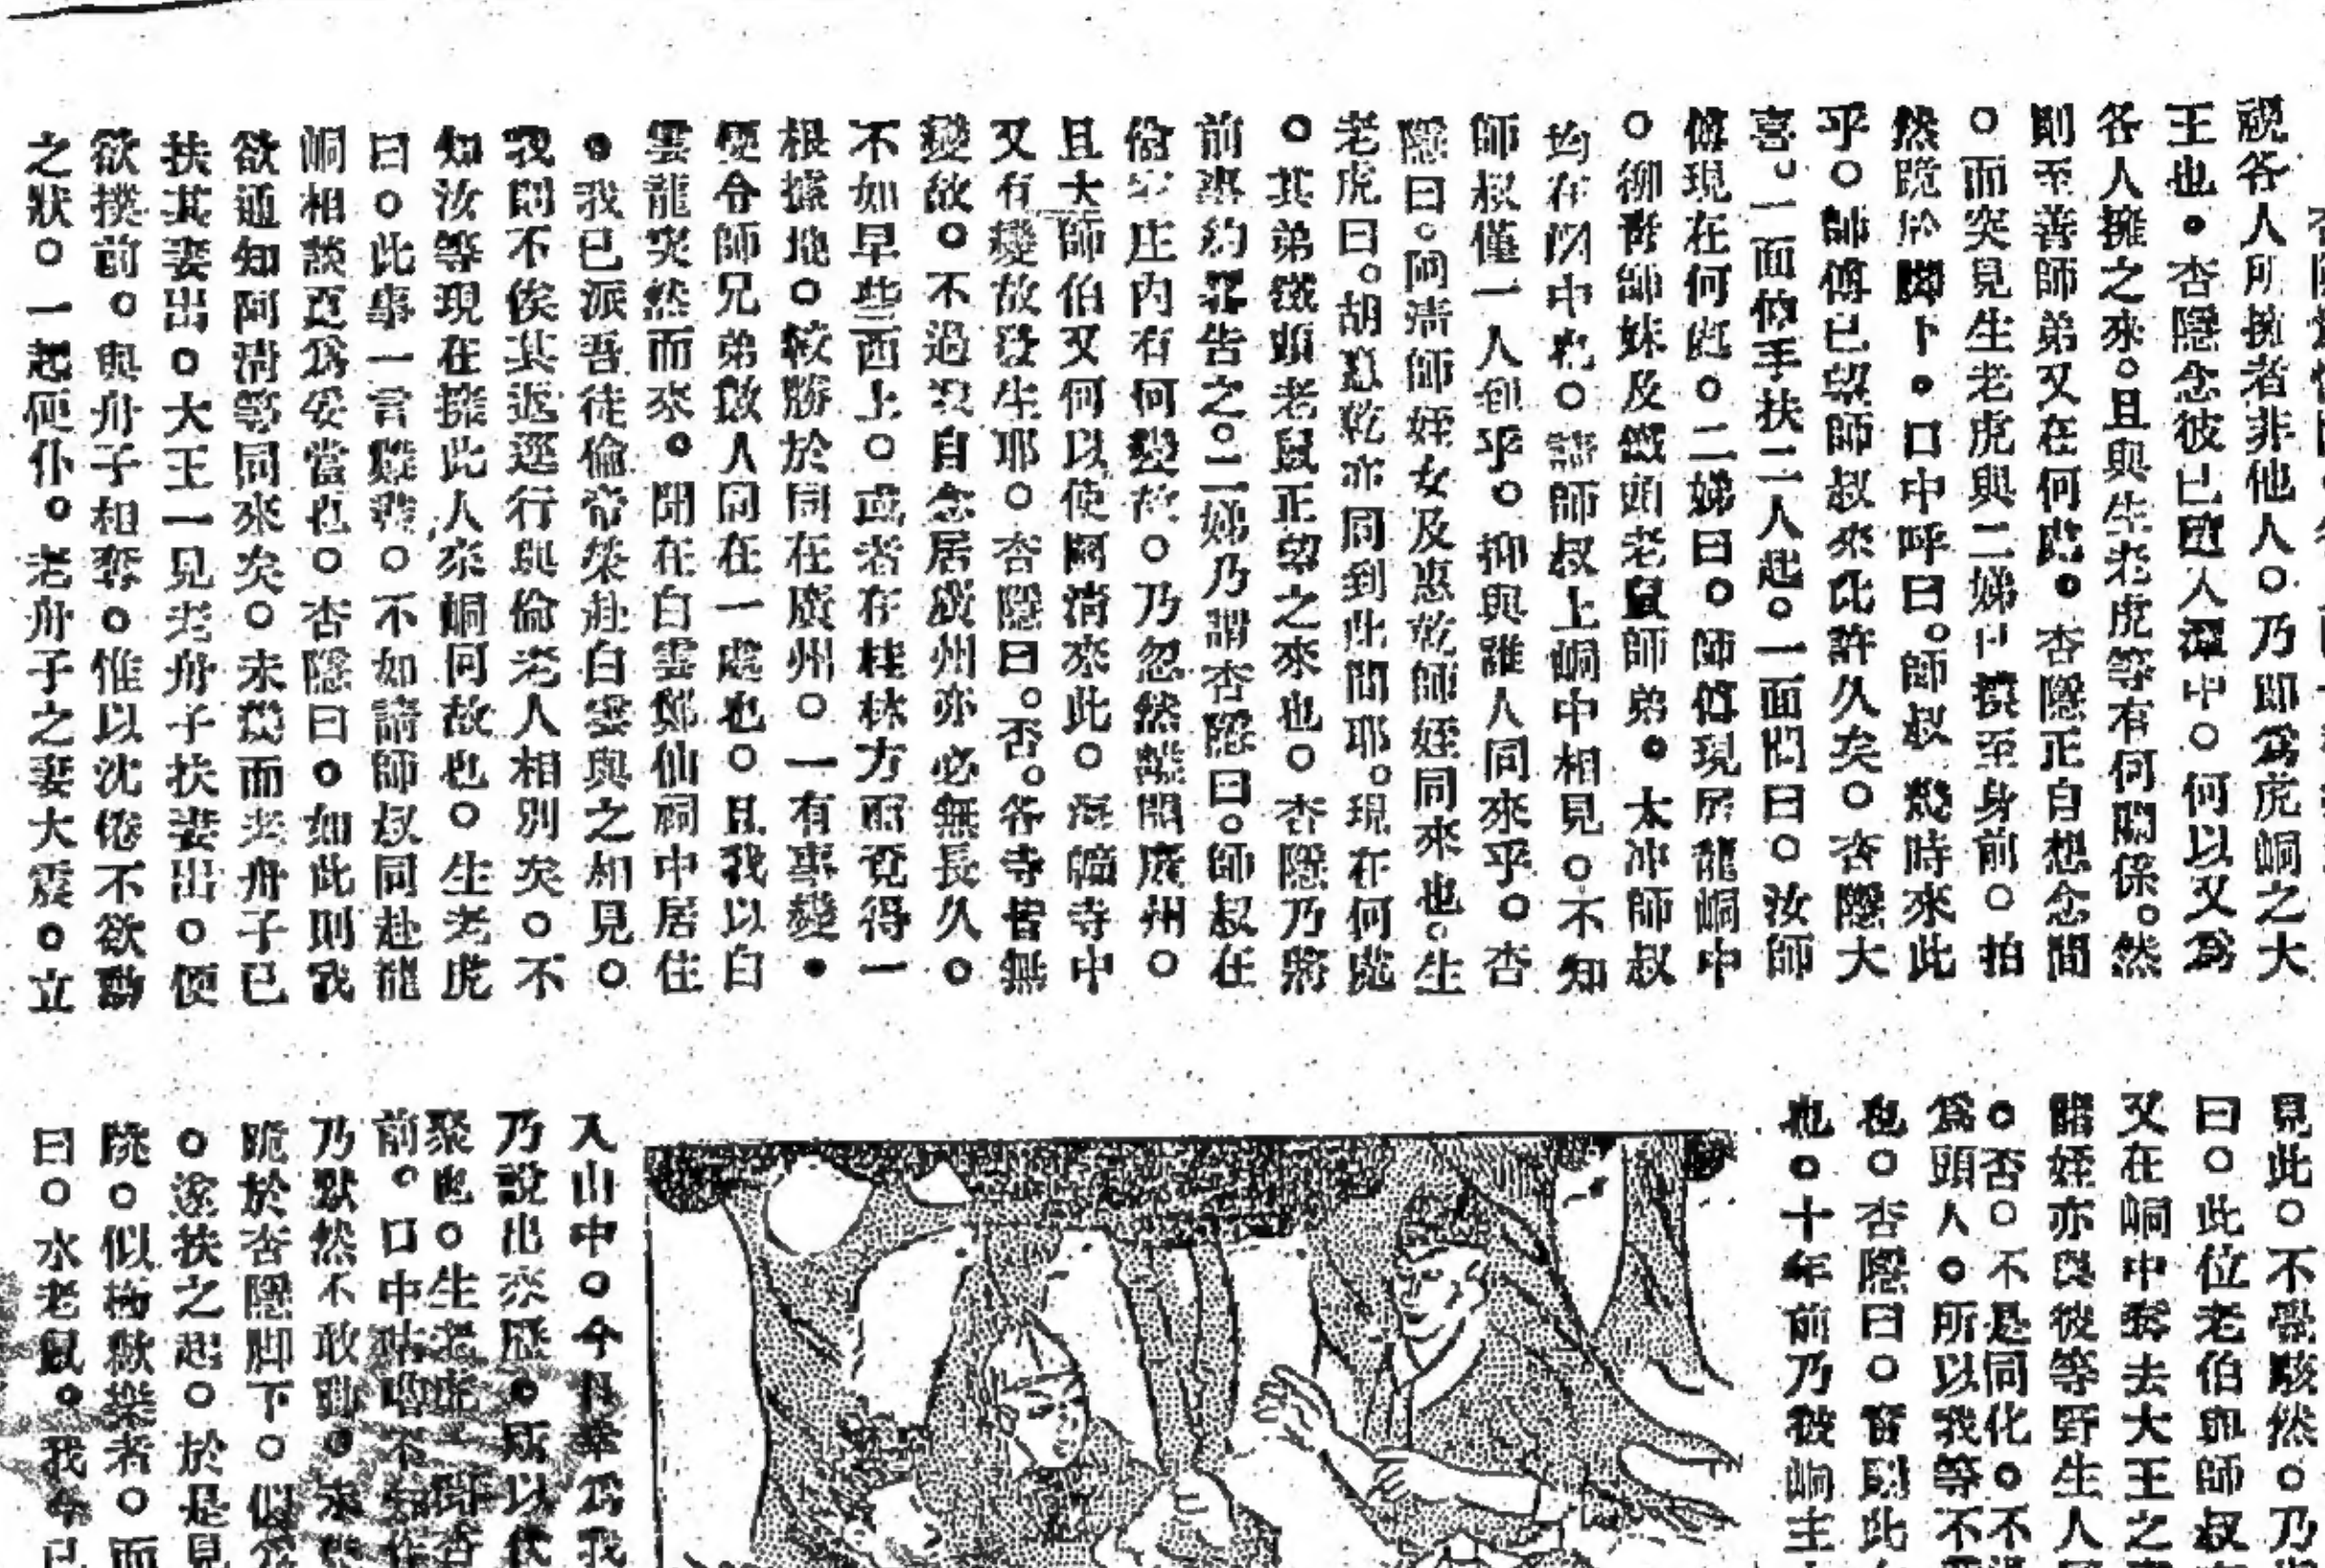 視各人所擁者非他人。乃即為虎峒之大
王也。杏隱念彼已墮入潭中。何以又為
各人擁之來。且與生老虎等有何關係。然
則至善師弟又在何處。杏隱正自想念間
。而突見生老虎與二娣日撲至身前。拍
然跪於脚下。口中呼曰。師叔 幾時來此
乎。師傅已望師叔來此許久矣。杏隱大
喜。一面伸手扶二人起。一面問曰。汝師
傅現在何處。二娣曰。師傅現居龍峒中
。柳青師妹及鐵頭老鼠師弟。太冲師叔
均在以中也。請師叔上峒中相見。不知
師叔僅一人到乎。抑與誰人同來乎。杏
隱曰。阿清師姪女及惠乾師姪同來也。生
老虎曰。胡惠乾亦同到此間耶。現在何處
。其弟鐵頭老鼠正望之來也。杏隱乃將
前事約畧告之。二娣乃謂杏隱曰。師叔在
倫家庄內有何變故。乃忽然離開廣州。
且大師伯又何以使阿清來此。海幢寺中
又有變故發生耶。杏隱曰。否。各寺皆無
變故。不過以自念居廣州亦必無長久。
不如早些西上。或者在桂林方面覓得一
根據地。較勝於同在廣州。一有事變。
便令師兄弟數人同在一處也。且我以白
雲龍突然而來。聞在白雲鄭仙祠中居住
。我已派吾徒倫帝榮赴白雲與之相見。
我則不俟其返逕行與倫老人相別矣。不
知汝等現在擁此人來峒何故也。生老虎
曰。此事一言難盡。不如請師叔同赴龍
峒相談更為妥當也。杏隱曰。如此則我
欲通知阿清等同來矣。未幾而老舟子已
扶其妻出。大王一見老舟子扶妻出。便
欲撲前。與舟子相奪。惟以沈倦不欲動
之狀。一起便仆。老舟子之妻大震。立
見此。不覺駭然。乃
曰。此位老伯與師叔
又在峒中奪去大王之
諸姪亦與彼等野生人
。否。不是同化。不
為頭人。所以我等不
也。杏隱曰。審則此
也。十年前乃被峒主
入山中。今日華為我
乃說出來歷。所以
聚也。生老虎
前。口中咕嚕不知作
乃默然不敢動。未
跪於杏隱脚下。似
。遂扶之起。於是見
曉。似極歡樂者。而
曰。水老鼠。我今已